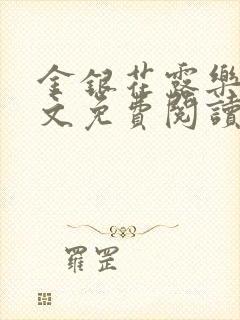 金銀花露樂
文免費閱讀
羅罡